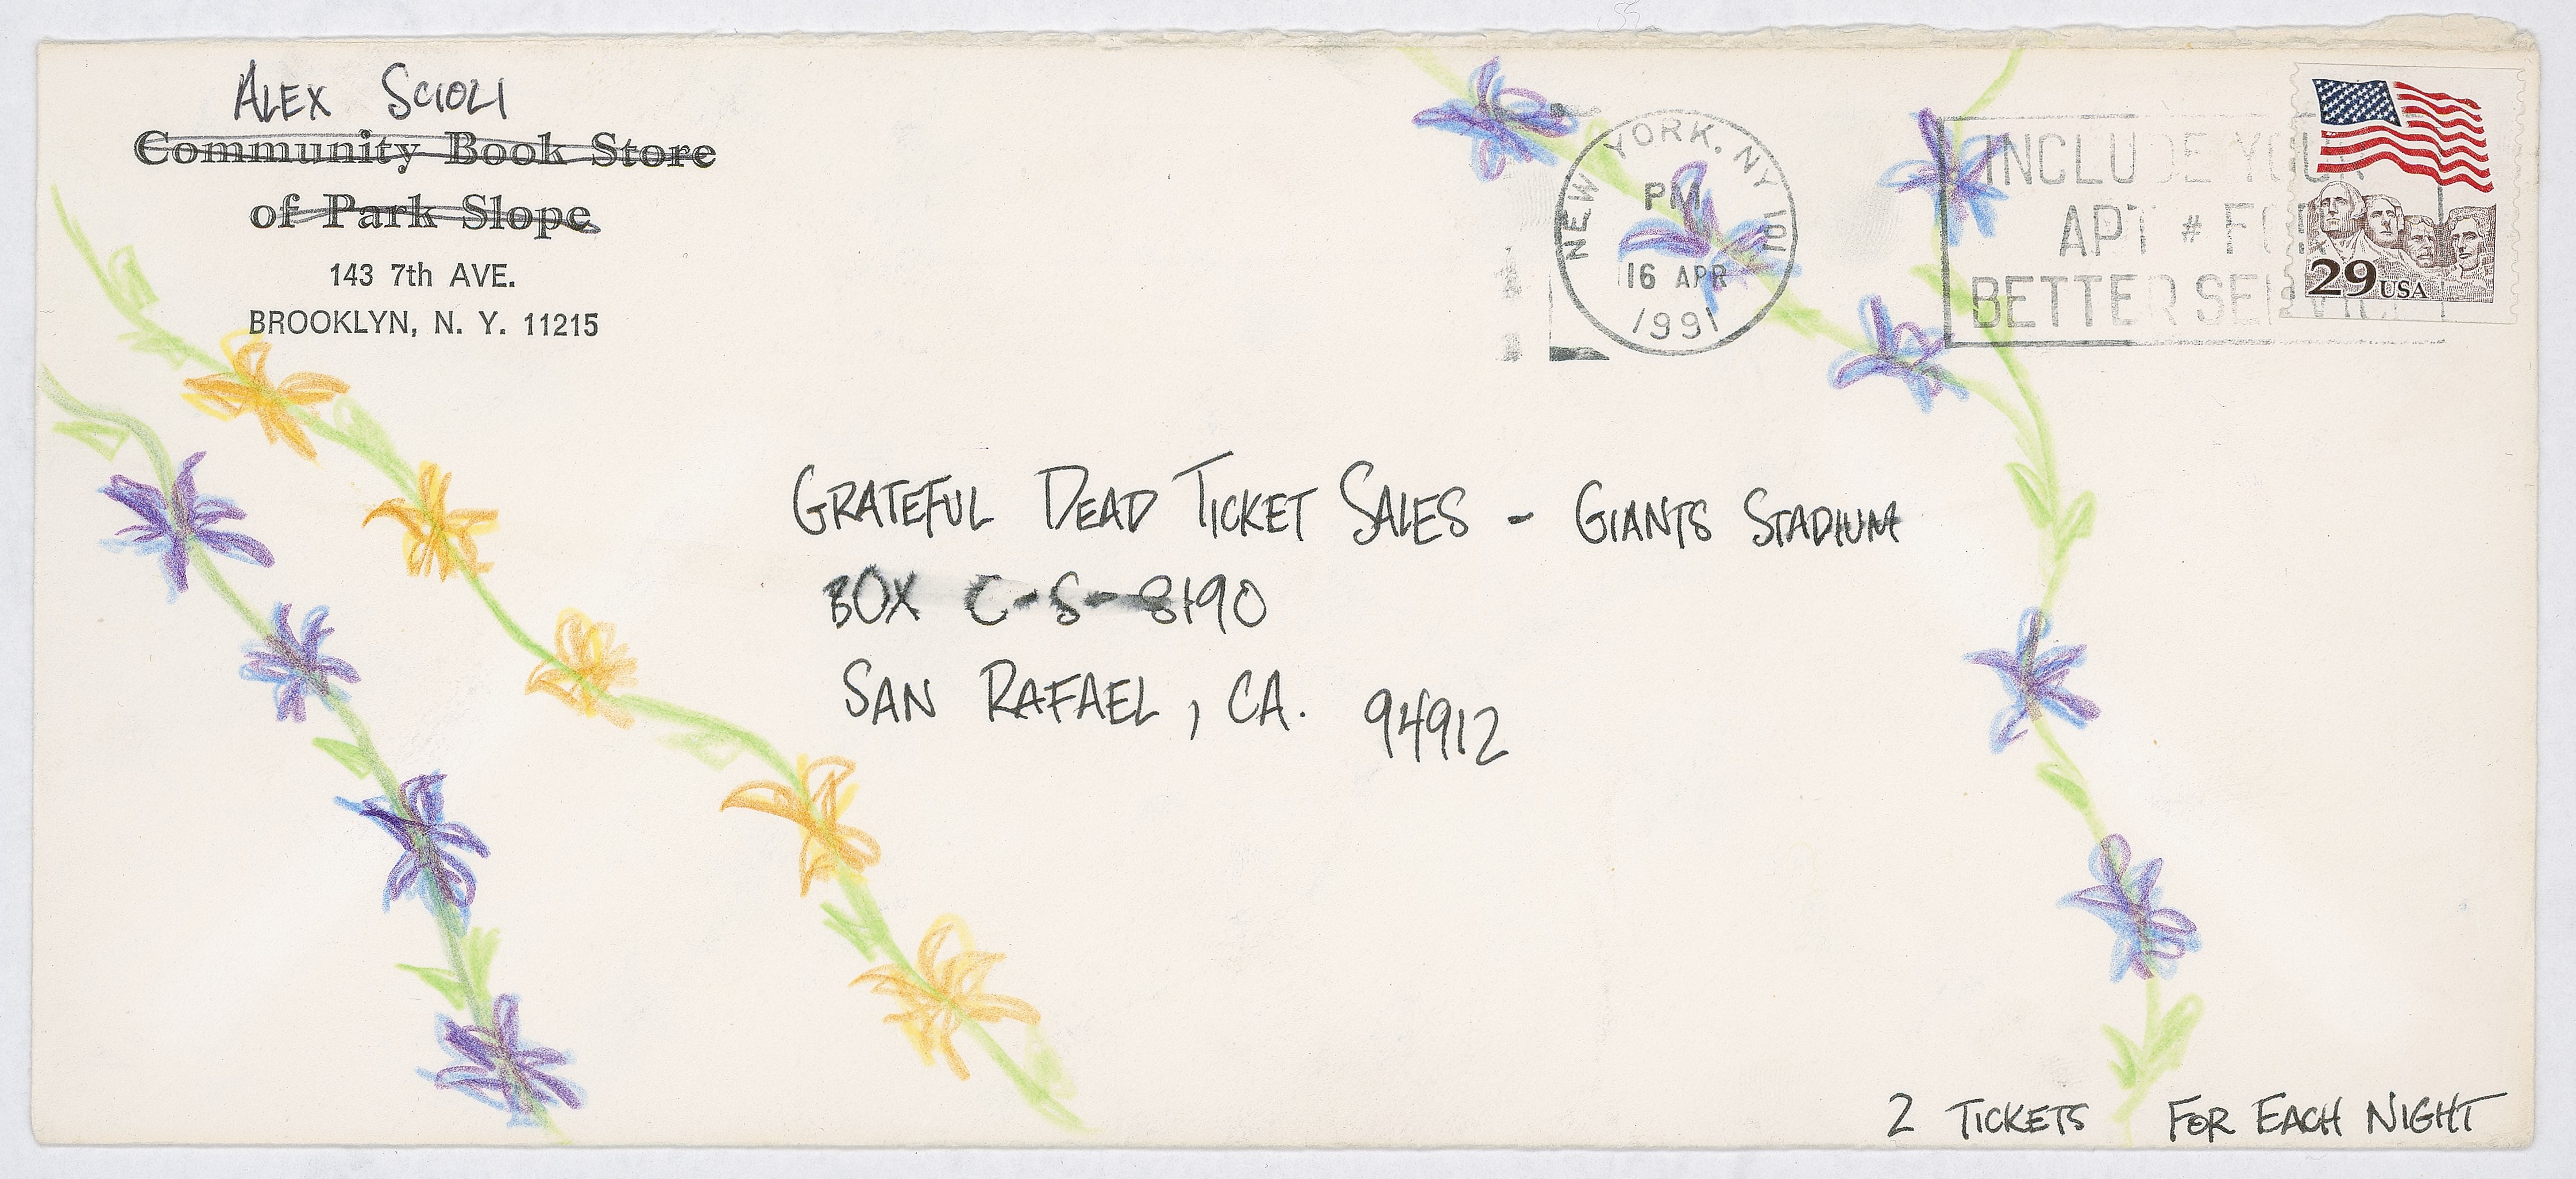 ALEX SCIOLI
Community Book Store
of Park Slope
143 7th AVE.
BROOKLYN, N. Y. 11215
NEW YORK, NY 101
PM
16 APR
1991
INCLUDE YOUR
APT # FOR
BETTER SERVICE
29 USA
GRATEFUL DEAD TICKET SALES - GIANTS STADIUM
BOX C-S-8190
SAN RAFAEL, CA. 94912
2 TICKETS FOR EACH NIGHT